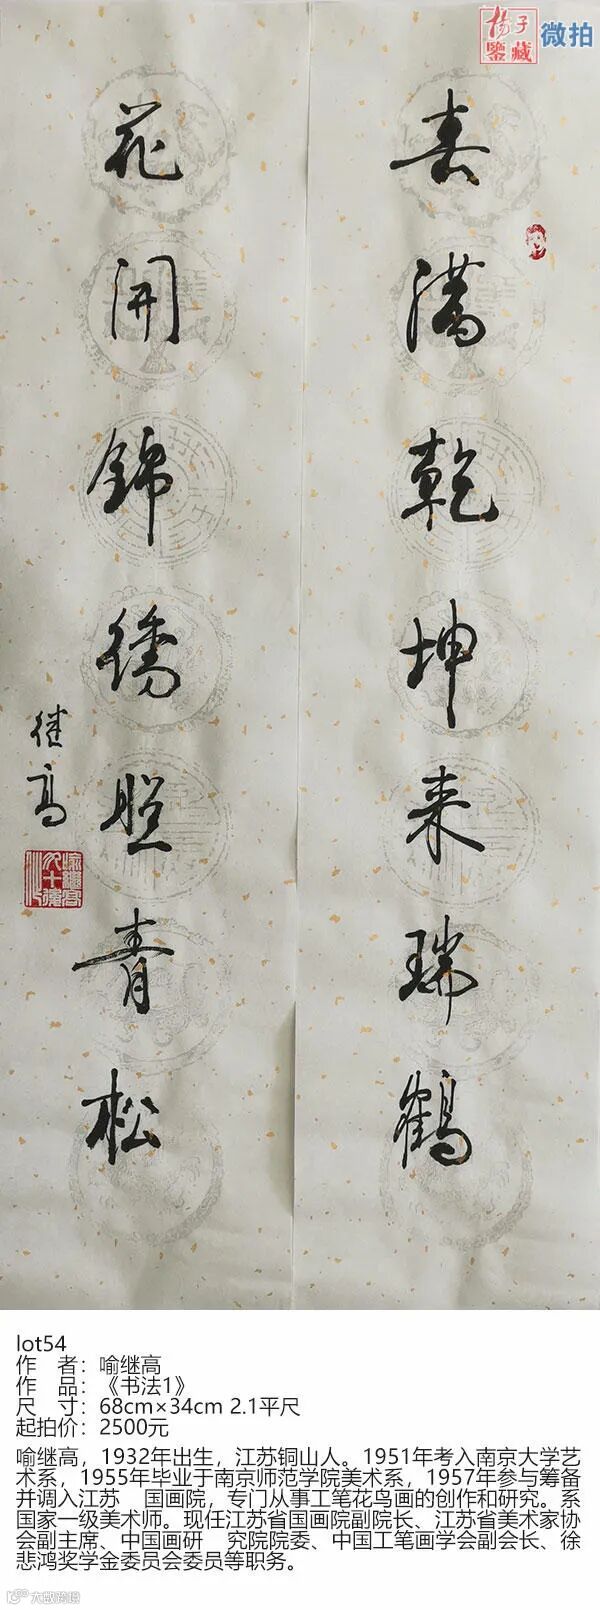 楊子
鑒藏
微拍
春满乾坤来瑞鶴
花開錦绣照青松
继高
lot54
作 者：喻继高
作 品：《书法1》
尺 寸：68cm×34cm 2.1平尺
起拍价：2500元
喻继高，1932年出生，江苏铜山人。1951年考入南京大学艺
术系，1955年毕业于南京师范学院美术系，1957年参与筹备
并调入江苏 国画院，专门从事工笔花鸟画的创作和研究。系
国家一级美术师。现任江苏省国画院副院长、江苏省美术家协
会副主席、中国画研 究院院委、中国工笔画学会副会长、徐
悲鸿奖学金委员会委员等职务。
大数跨境